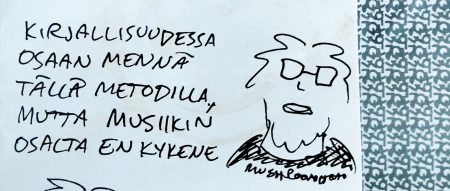 KIRJALLISUUDESSA
OSAAN MENNÄ
TÄLLÄ METODILLA,
MUTTA MUSIIKIN
OSALTA EN KYKENE